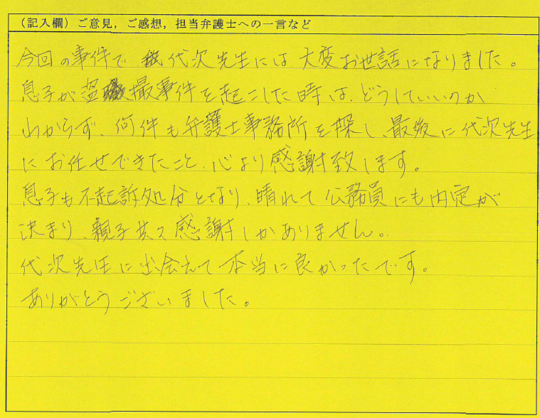 (記入欄)ご意見,ご感想,担当弁護士への一言など
今回の事件で 代次先生には大変お世話になりました。
息子が盗撮事件を起こした時は、どうしていいのか
わからず、何件も弁護士事務所を探し、最後に代次先生
にお任せできたこと、心より感謝致します。
息子も不起訴処分となり、晴れて公務員にも内定が
決まり、親子共々感謝しかありません。
代次先生に出会えて本当に良かったです。
ありがとうございました。